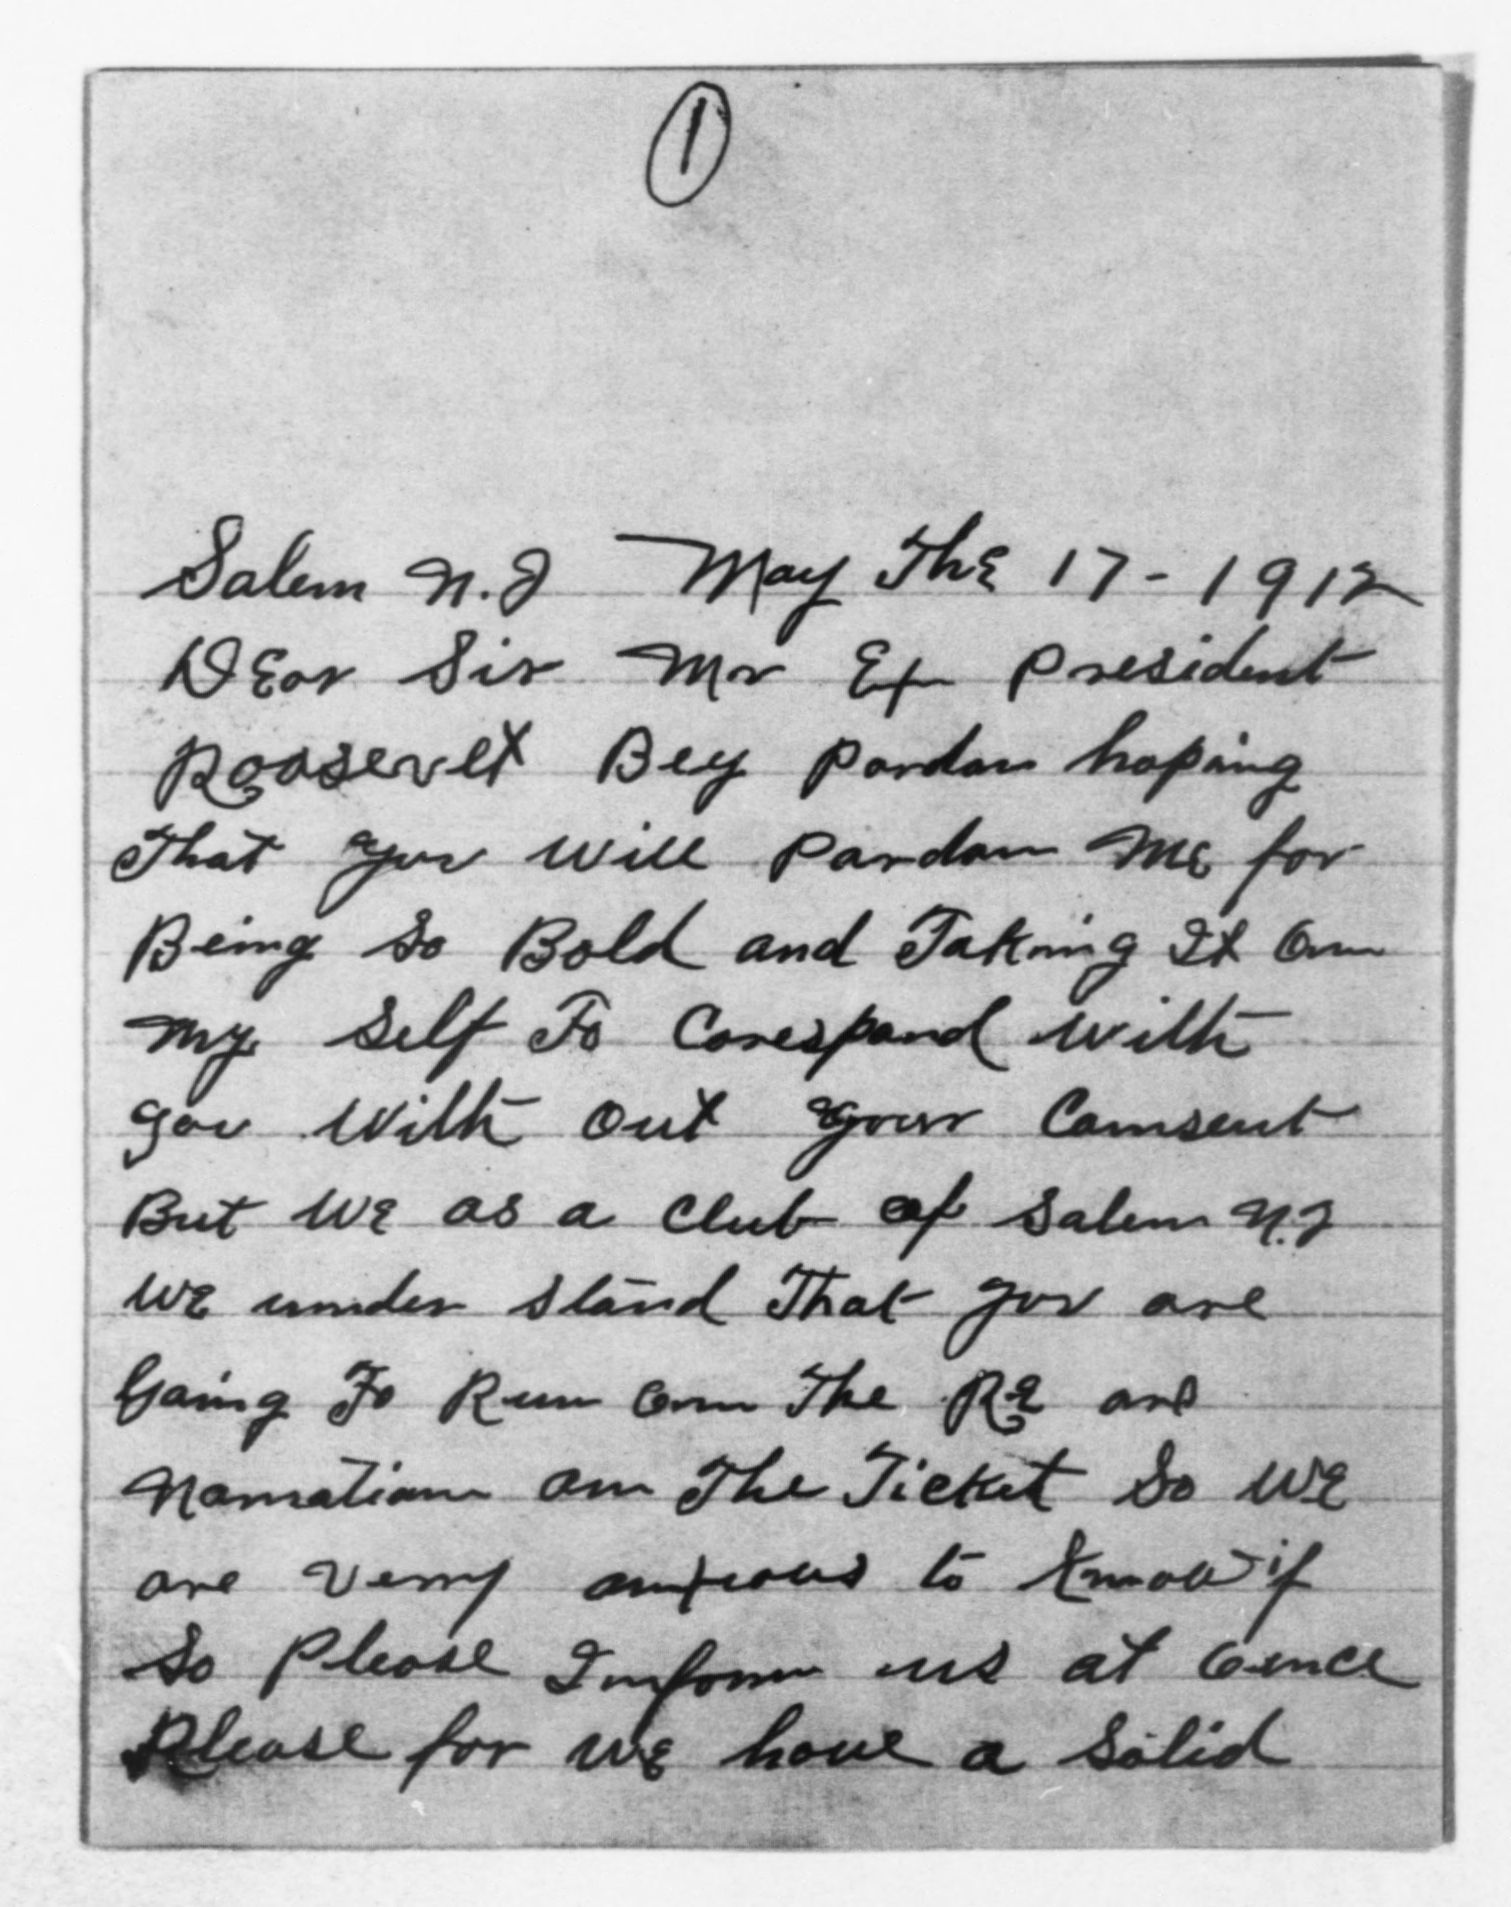 1
Salem N.J May The 17-1912
DEar Sir Mr Ex President
Roosevelt Beg pardon hoping
That you will Pardon ME for
Being so Bold and Taking It Onn
My Self To Corespond With
you With out your Comsent
But WE as a Club of Salem N.J
WE under stand That you are
Going To Run Onn The RE and
Nomation on The Ticket So WE
are verry anxious to know if
So Please Imform us at Oence
Please for WE have a Solid